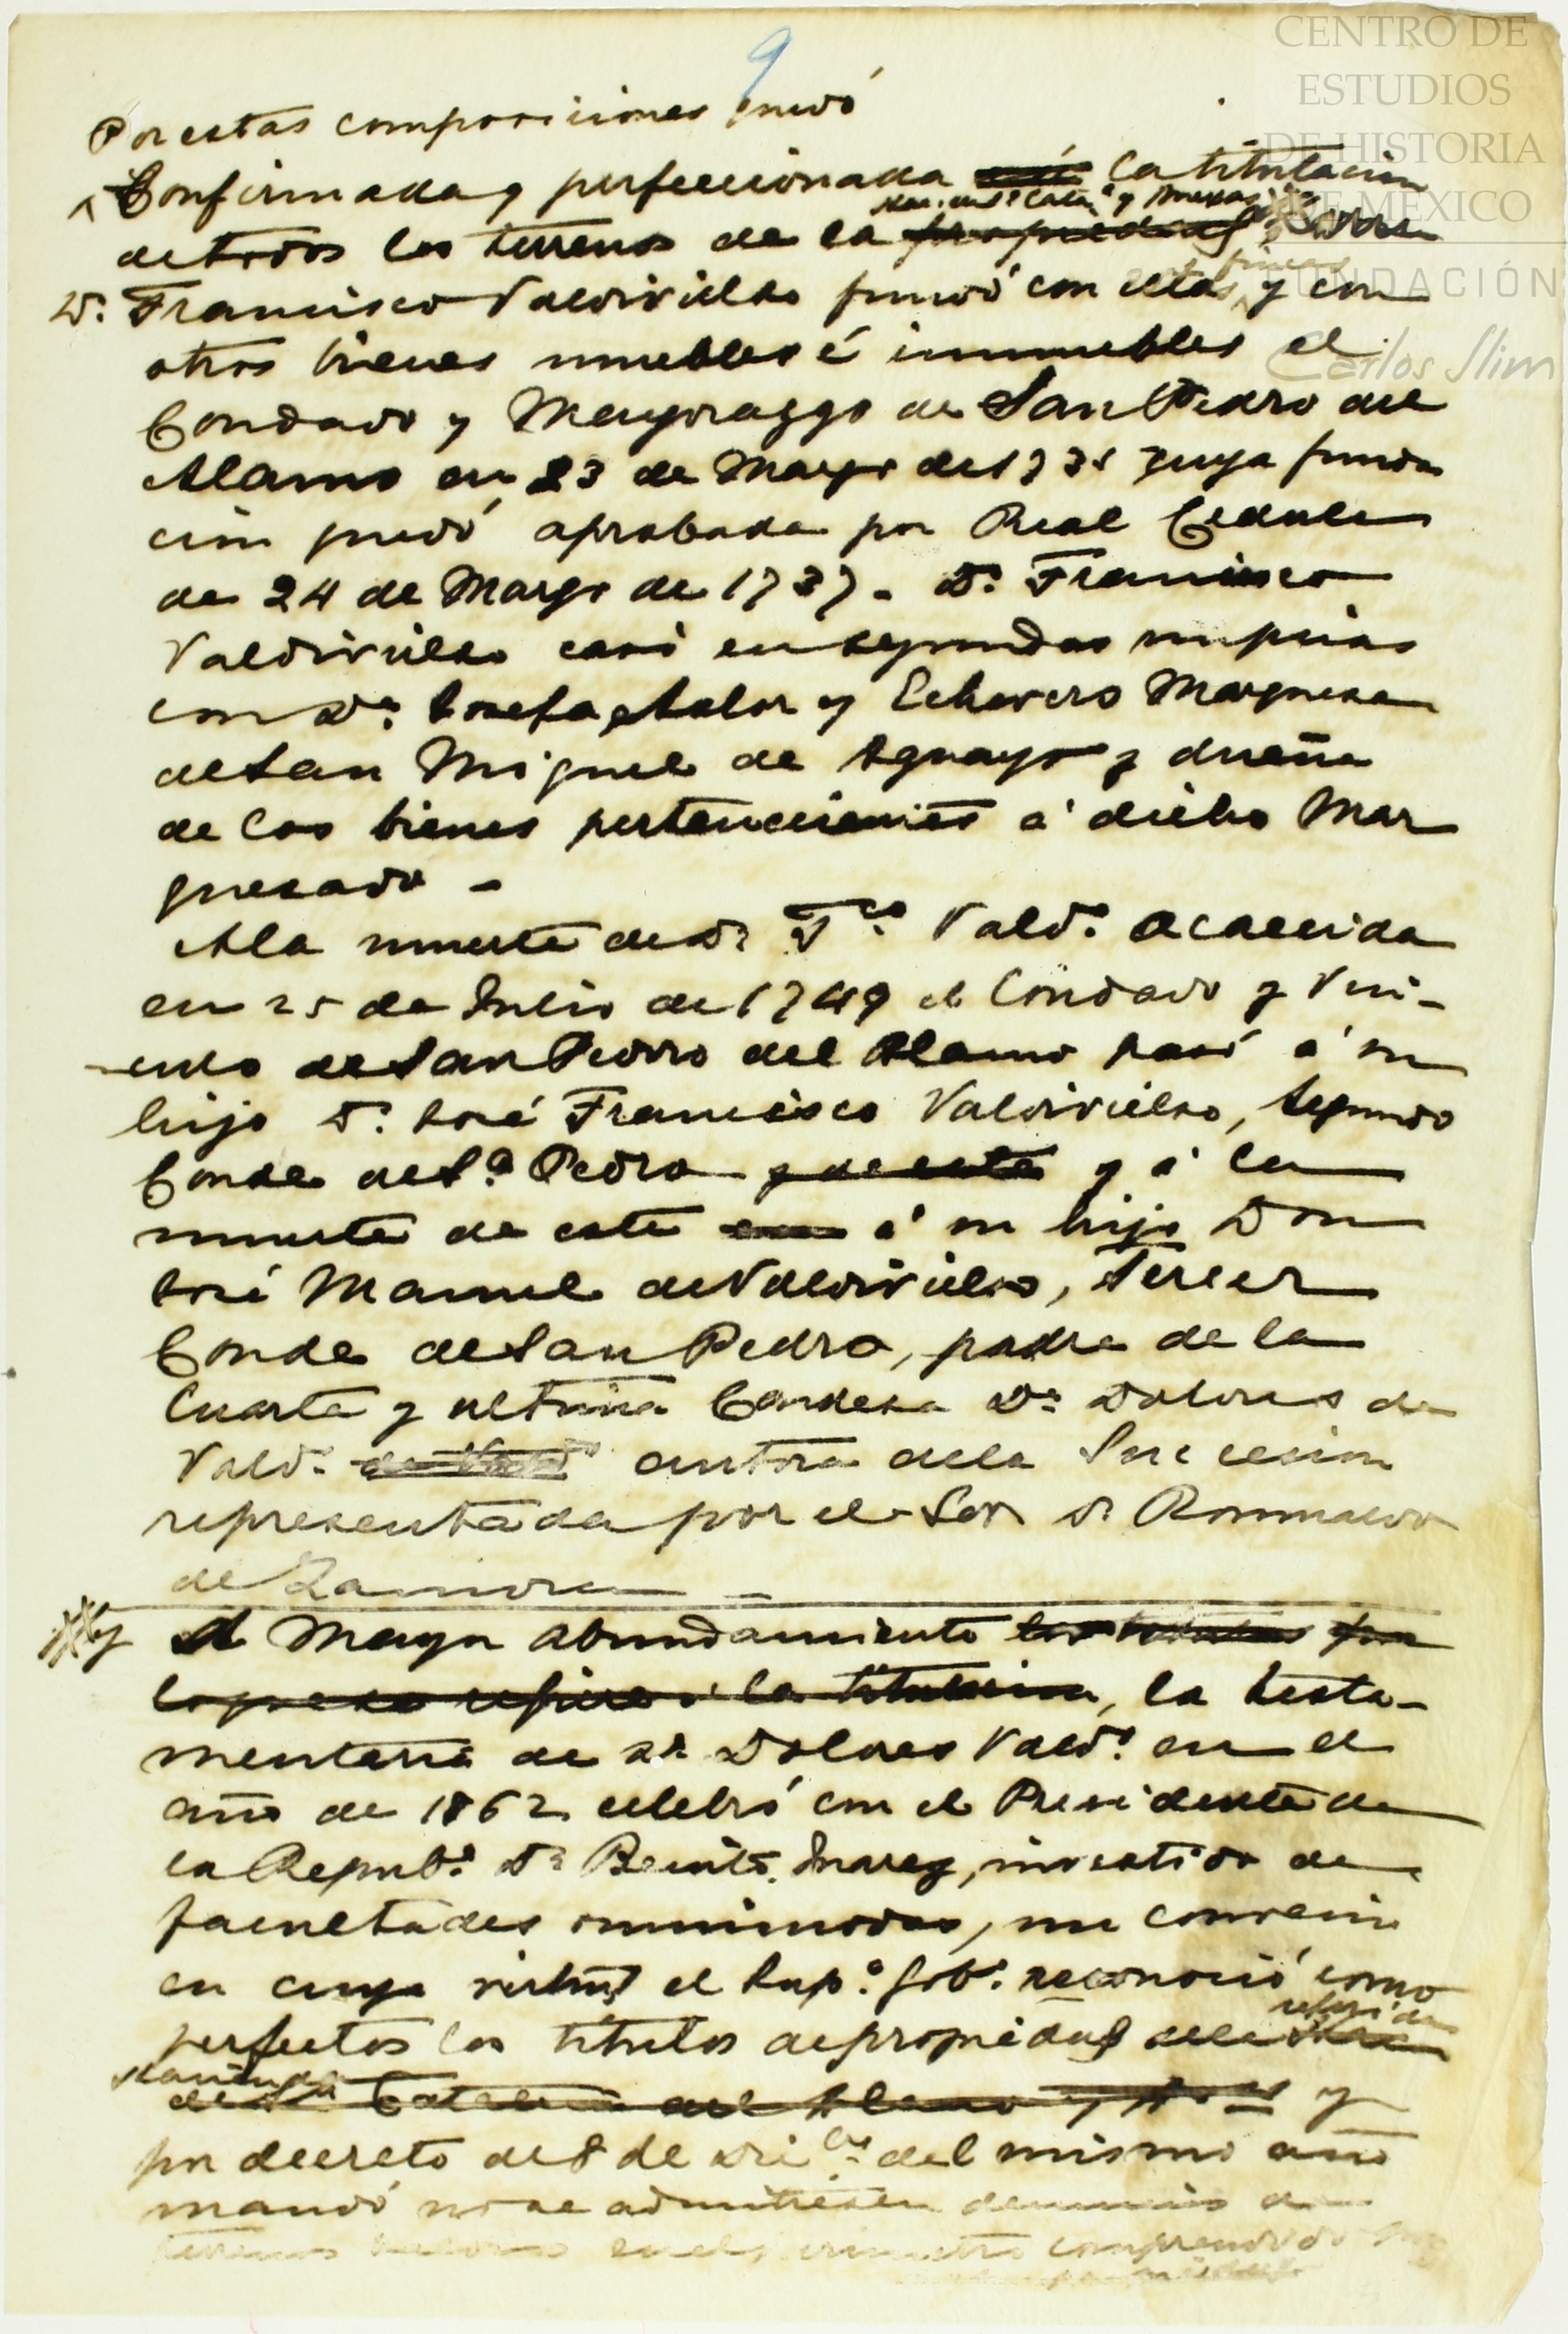 9
CENTRO DE
ESTUDIOS
DE HISTORIA
DE MÉXICO
FUNDACIÓN
Carlos Slim
Por estas composiciones quedó
Confirmada y perfeccionada la titulacion
Haciendª Catªˡ y Anexas
de todos los terrenos de la propiedad
fincas
Dⁿ. Francisco Valdivielso fundó con estas y con
otros bienes muebles é inmuebles el
Condado y Mayorazgo de San Pedro del
Alamo en 23 de Marzo de 1735 cuya funda
cion quedó aprobada por Real Cedula
de 24 de Marzo de 1737. Dⁿ. Francisco
Valdivielso casó en segundas nupcias
con Dª. Josefa Azlor y Echevers Marquesa
de San Miguel de Aguayo y dueña
de los bienes pertenecientes á dicho Mar
quesado -
A la muerte de Dⁿ Fᶜᵒ. Valdº. acaecida
en 25 de Julio de 1749 el Condado y Vin-
culo de San Pedro del Alamo pasó á su
hijo Dⁿ. José Francisco Valdivielso, Segundo
Conde de Sⁿ. Pedro y de este y á la
muerte de este á su hijo Don
José Manuel de Valdivielso, Tercer
Conde de San Pedro, padre de la
Cuarta y ultima Condesa Dª Dolores de
Valdº. autora de la Sucesion
representada por el Sor Dⁿ Romualdo
de Zamora
y A Mayor abundamiento
lo que se refiere á la titulacion, la testa-
mentaria de Dª Dolores Valdº. en el
año de 1862 celebró con el Presidente de
la Repubª. Dⁿ Benito Juarez, investido de
facultades omnimodas, un convenio
en cuya virtud el Supº. Gobº. reconoció como
referida
perfectos los titulos de propiedad de la Hacª
Hacienda
de Stª Catalina del Alamo y Anˣᵃˢ y
por decreto de 8 de Dicᵇʳᵉ. del mismo año
mandó no se admitiesen denuncios de
terrenos baldios en el perimetro comprendido